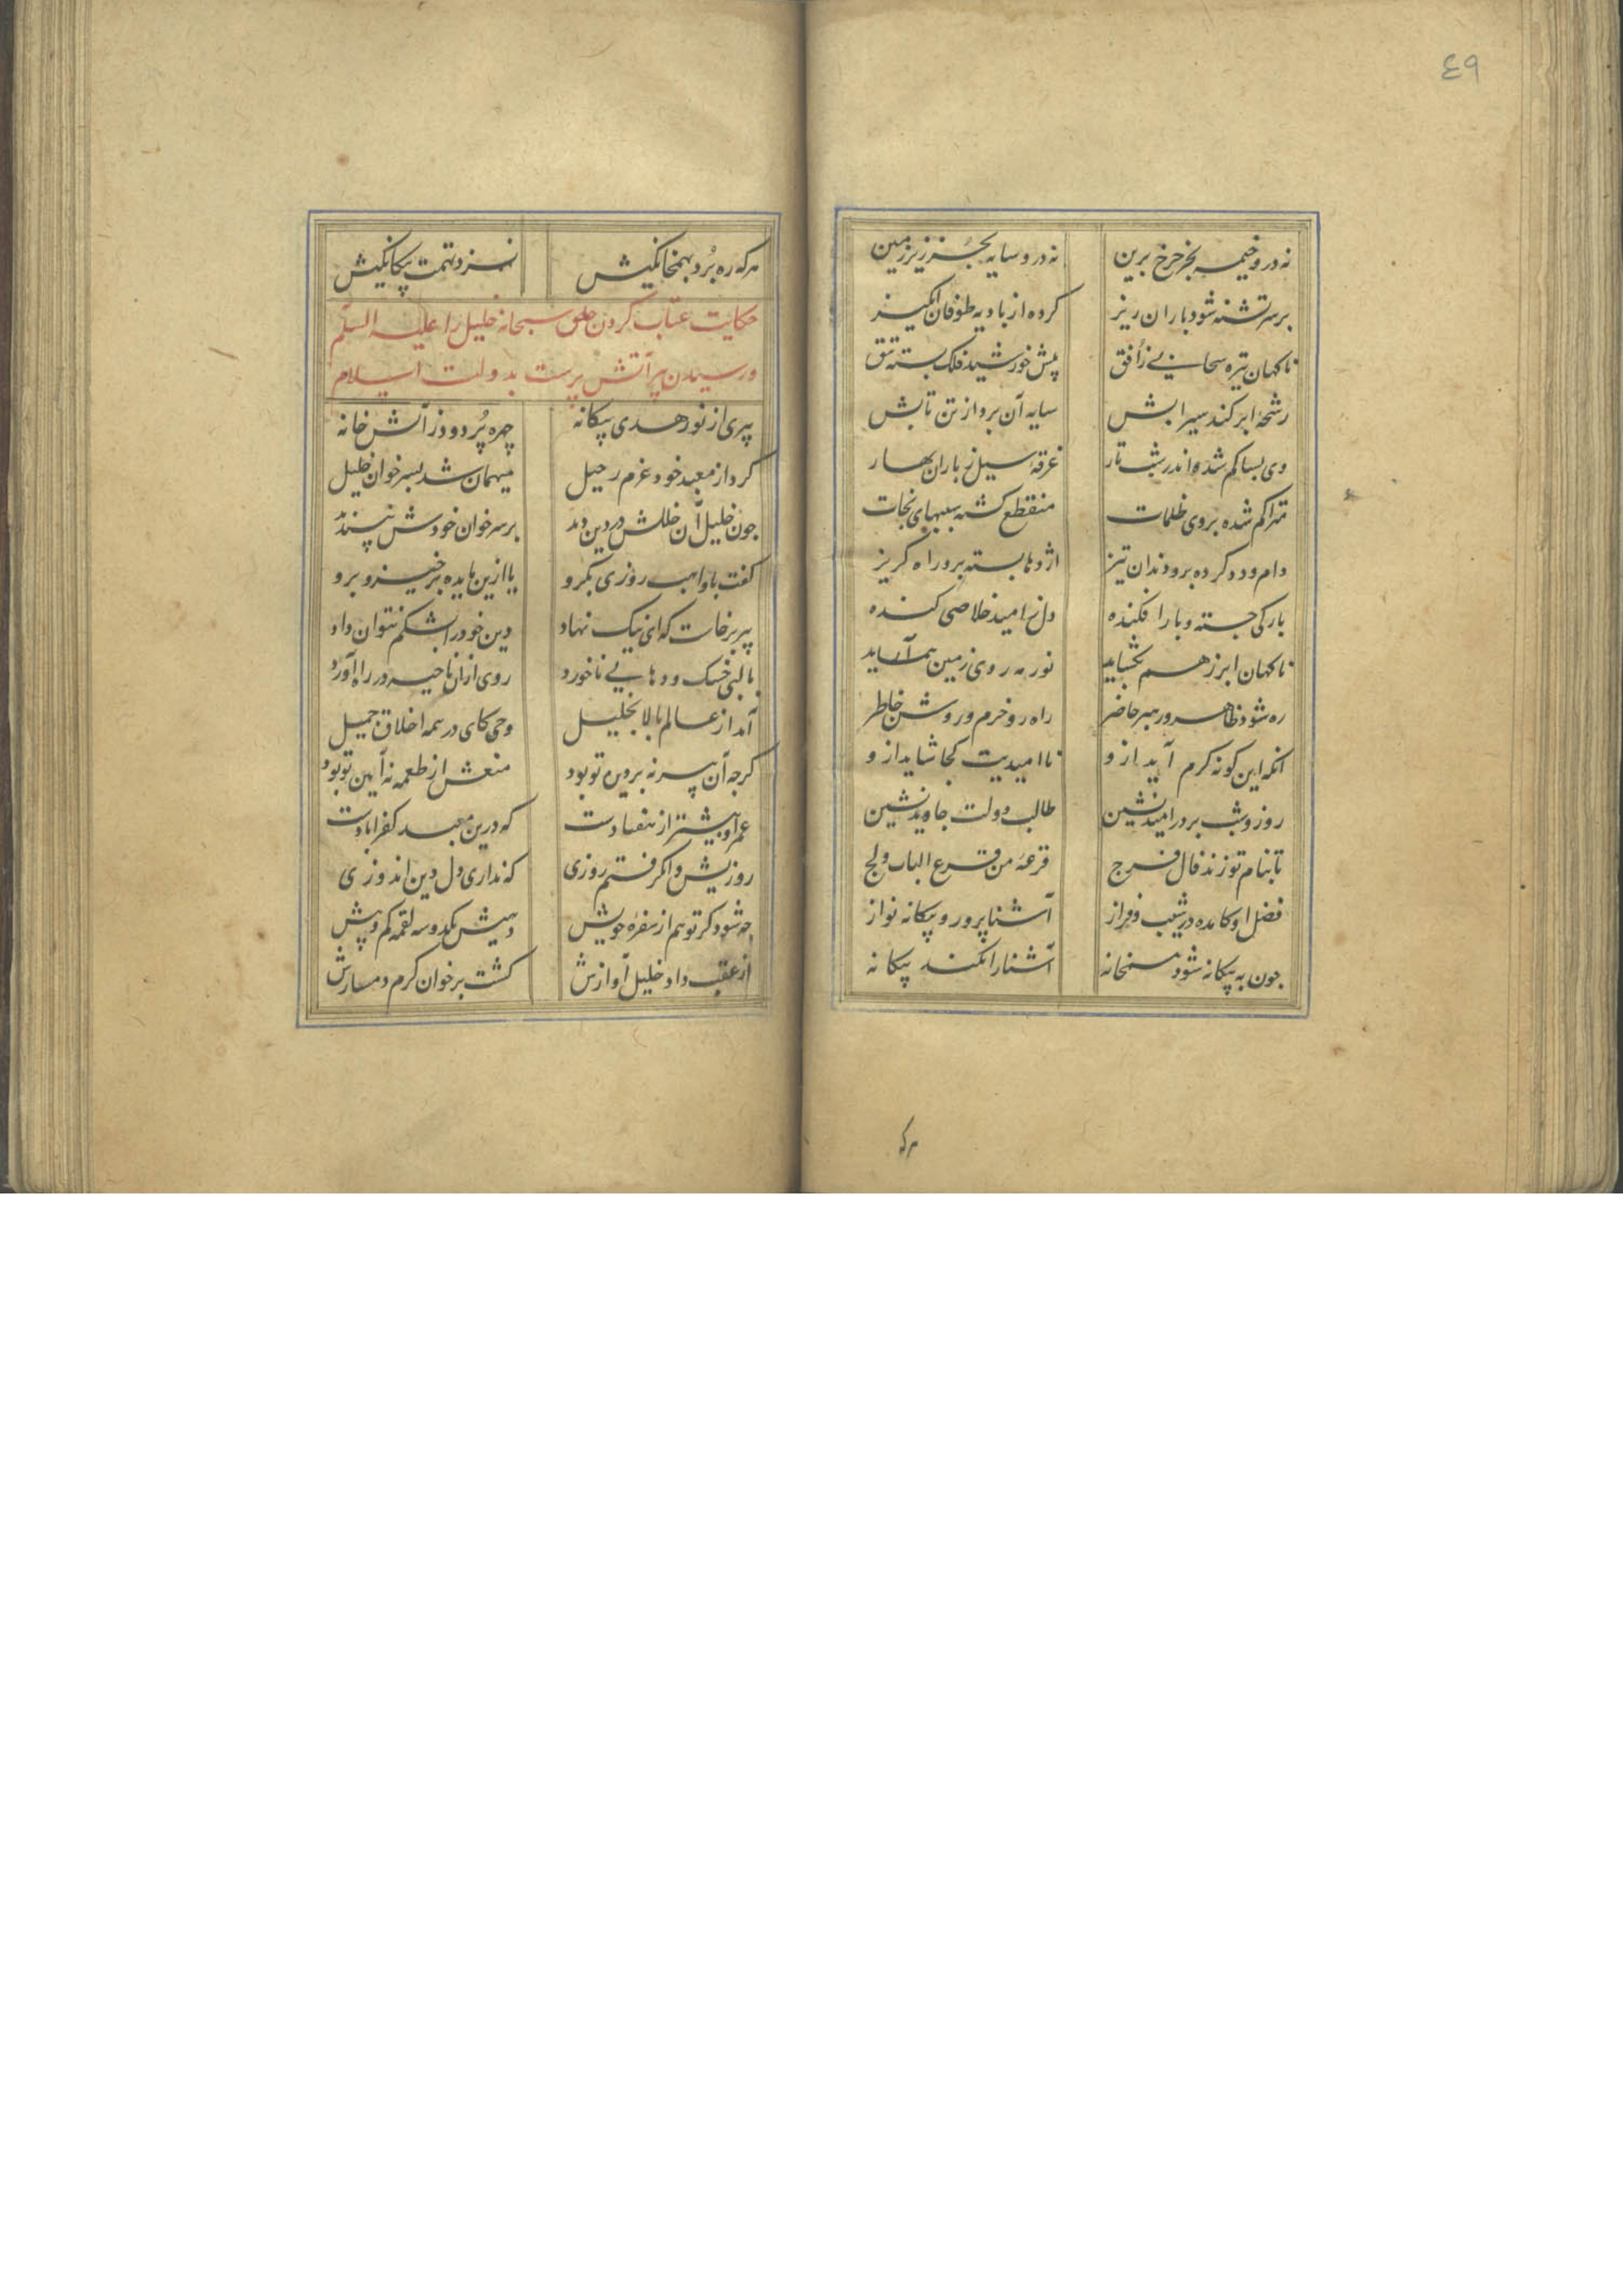 ٤٩
نه در و خیمه بجز چرخ برین نه در و سایه بجز زیر زمین
بر سر تشنه شود باران ریز کرده از بادیه طوفان انکیز
ناکهان تیره سحابی ز افق پیش خورشید فلک بسته تتق
رشحهٔ ابر کند سیرابش سایه آن برد از تن تابش
وی بسا کم شده اندر شب تار غرقهٔ سیل ز باران بهار
متراکم شده بروی ظلمات منقطع کشته سببهای نجات
دام و دد کرده برو دندان تیز اژدها بسته برو راه کریز
بارکی جسته و بار افکنده دل ز امید خلاصی کنده
ناکهان ابر ز هم بکشاید نور مه روی زمین آراید
ره شود ظاهر و رهبر حاضر راه رو خرم و روشن خاطر
انکه این کونه کرم آید ازو ناامیدیت کجا شاید ازو
روز و شب بر در امید نشین طالب دولت جاوید نشین
تا بنام تو زند فال فرج قرعهٔ من قرع الباب ولج
فضل او کامده در شیب و فراز آشنا پرور و بیکانه نواز
جون به بیکانه شود همخانه آشنا را نکند بیکانه
هر که
هر که ره برد بهمخانکیش نسزد تهمت بیکانکیش
حکایت عتاب کردن حق سبحانه خلیل را علیه السلم
و رسیدن پیر آتش پرست بدولت اسلام
پیری از نور هدی بیکانه چهره پر دود ز آتش خانه
کرد از معبد خود عزم رحیل میهمان شد بسر خوان خلیل
جون خلیل آن خللش در دین دید بر سر خوان خودش نپسندید
کفت با واهب روزی بکرو یا ازین مایده برخیز و برو
پیر برخاست که ای نیک نهاد دین خود را بشکم نتوان داد
با لبی خشک و دهانی ناخورد روی ازان ناحیه در راه آورد
آمد از عالم بالا بخلیل وحی کای در همه اخلاق جمیل
کرجه آن پیر نه بر دین تو بود منعش از طعمه نه آیین تو بود
عمر او بیشتر از هفتادست که درین معبد کفر آبادست
روزیش وانکرفتم روزی که نداری دل دین اندوزی
جه شود کر تو هم از سفرهٔ خویش دهیش یکدو سه لقمه کم و بیش
از عقب داد خلیل آوازش کشت بر خوان کرم دمسازش